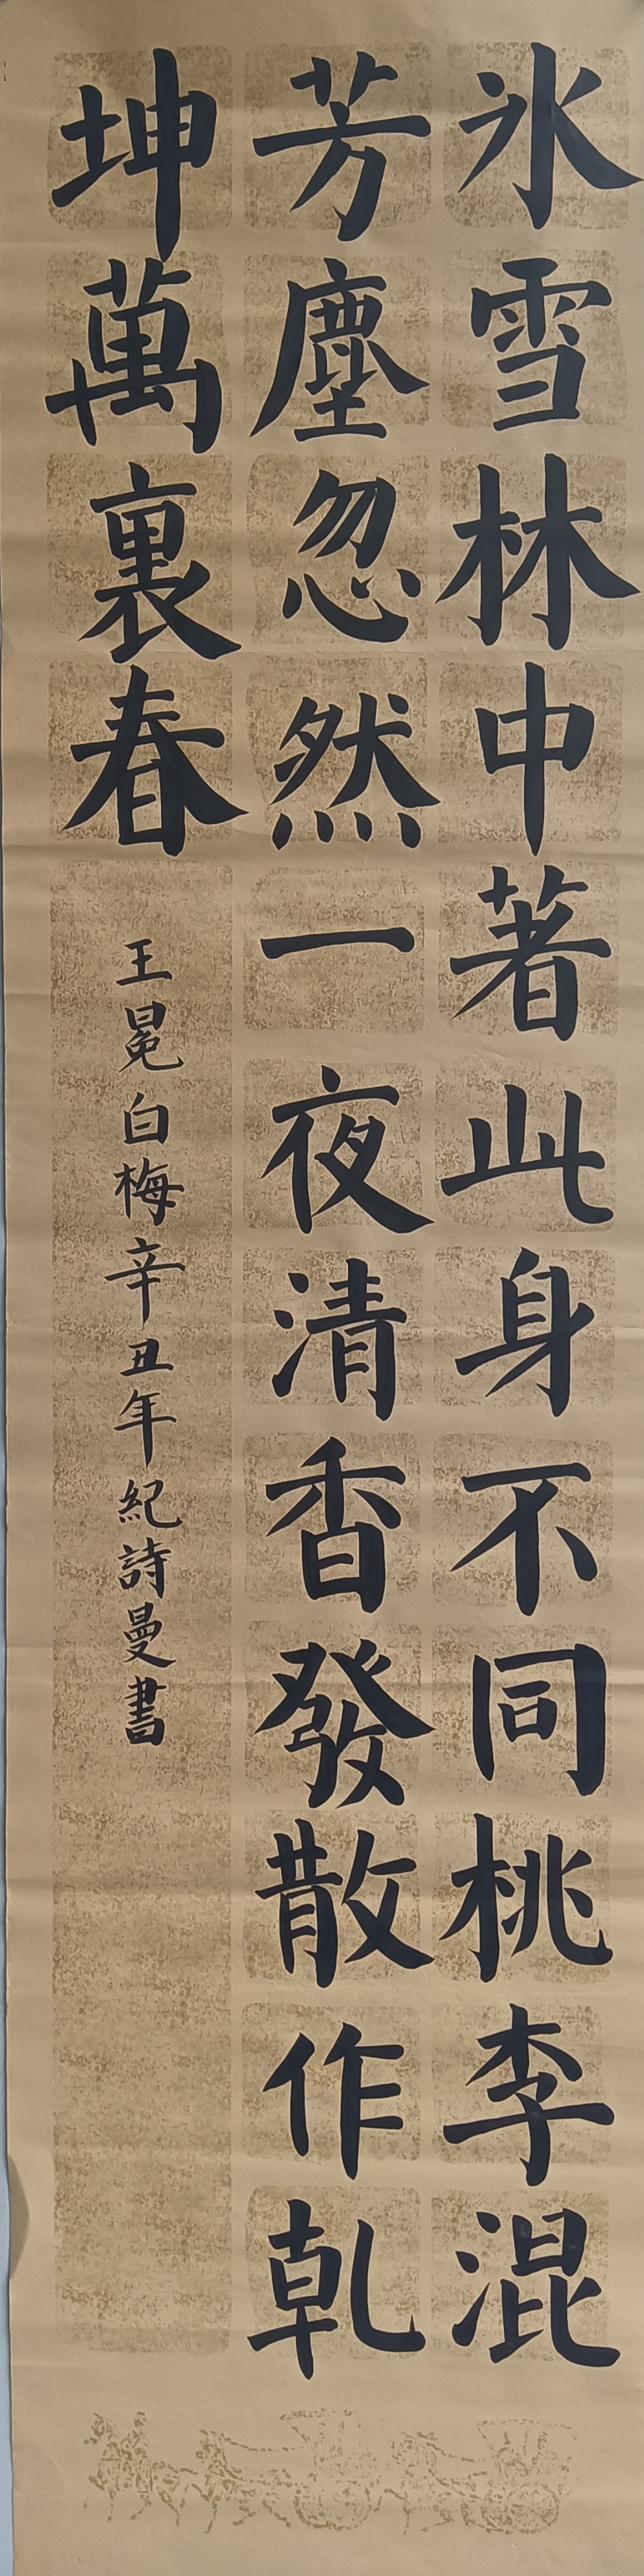 氷雪林中著此身不同桃李混
芳塵忽然一夜清香發散作乹
坤萬裏春
王冕白梅辛丑年紀詩曼書